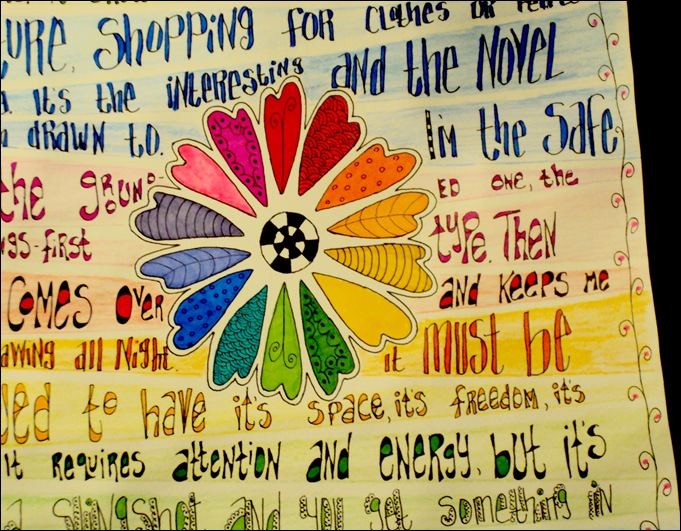 URE, Shopping for clothes or
it's the interesting and the Novel
drawn to. I'm the Safe
the ground ED one, the
NGS-first type. Then
Comes over and keeps me
awing all Night. it must be
to have it's space, it's freedom, it's
it requires attention and energy, but it's
a slingshot and you get something in